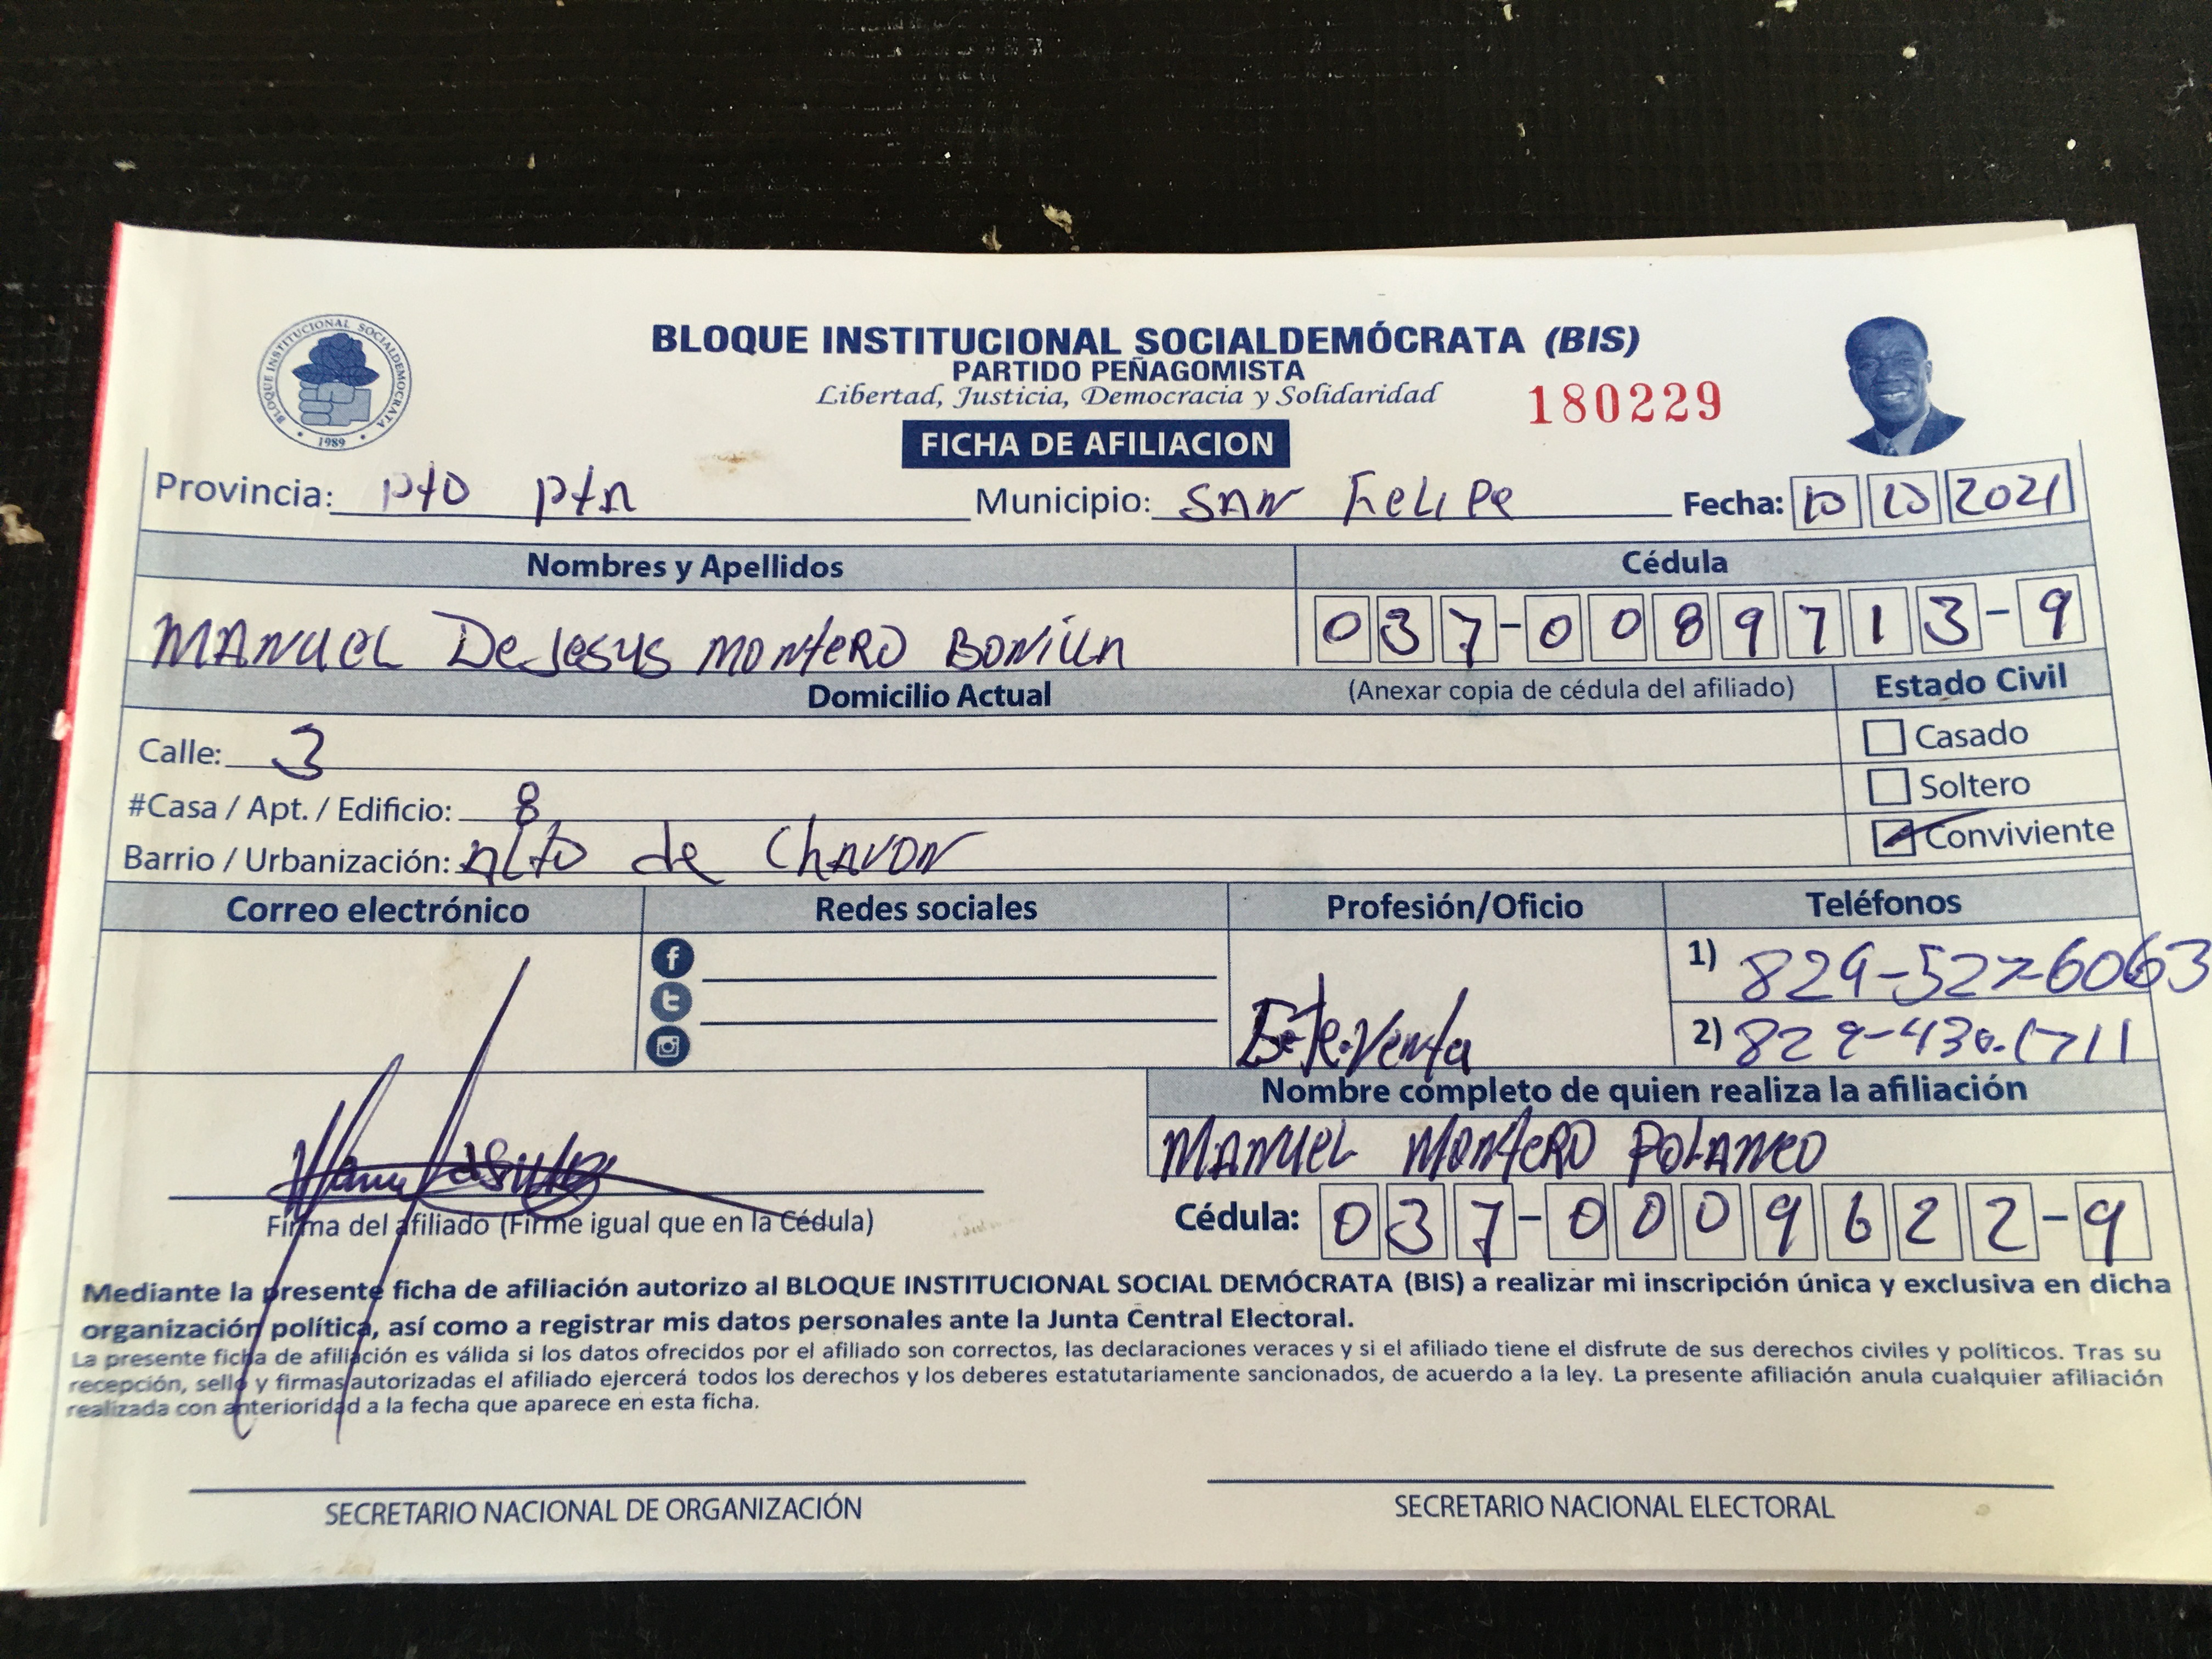 BLOQUE INSTITUCIONAL SOCIALDEMOCRATA
1989
BLOQUE INSTITUCIONAL SOCIALDEMÓCRATA (BIS)
PARTIDO PEÑAGOMISTA
Libertad, Justicia, Democracia y Solidaridad
180229
FICHA DE AFILIACION
Provincia: Pto Pta Municipio: SAN FeLiPe Fecha: 10 10 2021
Nombres y Apellidos Cédula
MANUEL DeJesus MONteRO BONiLLA 037-0089713-9
Domicilio Actual (Anexar copia de cédula del afiliado) Estado Civil
Calle: 3 Casado
#Casa / Apt. / Edificio: 8 Soltero
Barrio / Urbanización: Alto de ChAVON Conviviente
Correo electrónico Redes sociales Profesión/Oficio Teléfonos
1) 829-527-6063
Venta
2) 829-430-1711
Nombre completo de quien realiza la afiliación
MANUEL MONteRO POLANCO
Firma del afiliado (Firme igual que en la Cédula)
Cédula: 037-0009622-9
Mediante la presente ficha de afiliación autorizo al BLOQUE INSTITUCIONAL SOCIAL DEMÓCRATA (BIS) a realizar mi inscripción única y exclusiva en dicha
organización política, así como a registrar mis datos personales ante la Junta Central Electoral.
La presente ficha de afiliación es válida si los datos ofrecidos por el afiliado son correctos, las declaraciones veraces y si el afiliado tiene el disfrute de sus derechos civiles y políticos. Tras su
recepción, sello y firmas autorizadas el afiliado ejercerá todos los derechos y los deberes estatutariamente sancionados, de acuerdo a la ley. La presente afiliación anula cualquier afiliación
realizada con anterioridad a la fecha que aparece en esta ficha.
SECRETARIO NACIONAL DE ORGANIZACIÓN SECRETARIO NACIONAL ELECTORAL